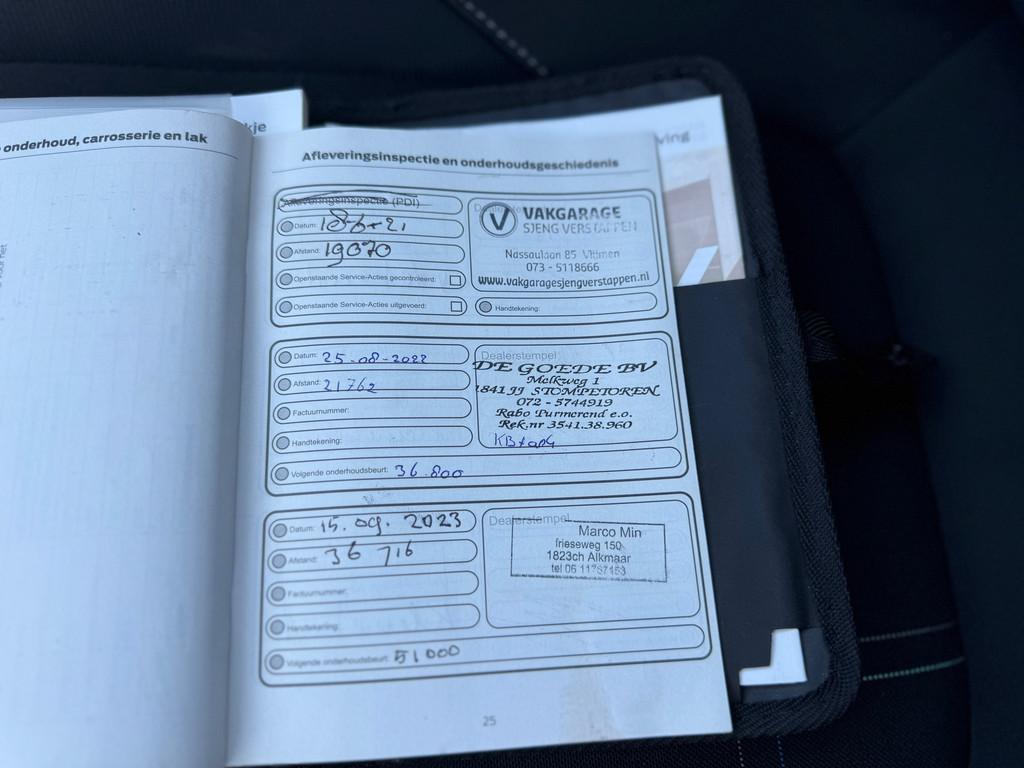 onderhoud, carrosserie en lak
kje
ving
Afleveringsinspectie en onderhoudsgeschiedenis
Afleveringsinspectie (PDI)
Datum: 18-6-21
Afstand: 19070
Openstaande Service-Acties gecontroleerd:
Openstaande Service-Acties uitgevoerd:
VAKGARAGE
SJENG VERSTAPPEN
Nassaulaan 85 Vlijmen
073 - 5118666
www.vakgaragesjengverstappen.nl
Handtekening:
Datum: 25-08-2022
Afstand: 21762
Factuurnummer:
Handtekening:
Volgende onderhoudsbeurt: 36.800
Dealerstempel
DE GOEDE BV
Melkweg 1
1841 JJ STOMPETOREN
072 - 5744919
Rabo Purmerend e.o.
Rek.nr 3541.38.960
Datum: 15. 09. 2023
Afstand: 36 716
Factuurnummer:
Handtekening:
Volgende onderhoudsbeurt: 51000
Dealerstempel
Marco Min
frieseweg 150
1823ch Alkmaar
tel 06
25